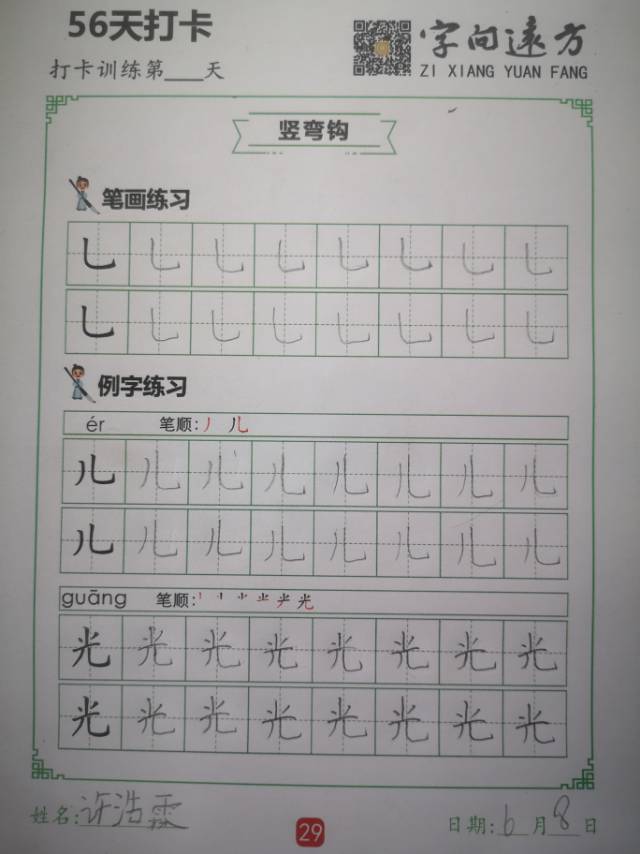 56天打卡
字向远方
打卡训练第___天
ZI XIANG YUAN FANG
竖弯钩
笔画练习
乚 乚 乚 乚 乚 乚 乚 乚
乚 乚 乚 乚 乚 乚 乚 乚
例字练习
ér 笔顺: 丿 儿
儿 儿 儿 儿 儿 儿 儿 儿
儿 儿 儿 儿 儿 儿 儿 儿
guāng 笔顺: 光
光 光 光 光 光 光 光 光
光 光 光 光 光 光 光 光
姓名: 许浩霖
29
日期: 6 月 8 日